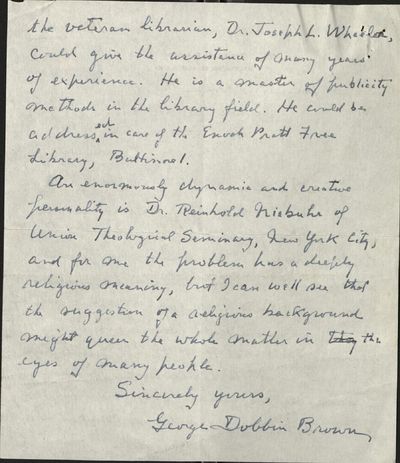 the veteran librarian, Dr. Joseph L. Wheeler,
could give the assistance of many years
of experience. He is a master of publicity
methods in the library field. He could be
addressed in care of the Enoch Pratt Free
Library, Baltimore 1.
An enormously dynamic and creative
personality is Dr. Reinhold Niebuhr of
Union Theological Seminary, New York City,
and for me the problem has a deeply
religious meaning, but I can well see that
the suggestion of a religious background
might queer the whole matter in they the
eyes of many people.
Sincerely yours,
George Dobbin Brown